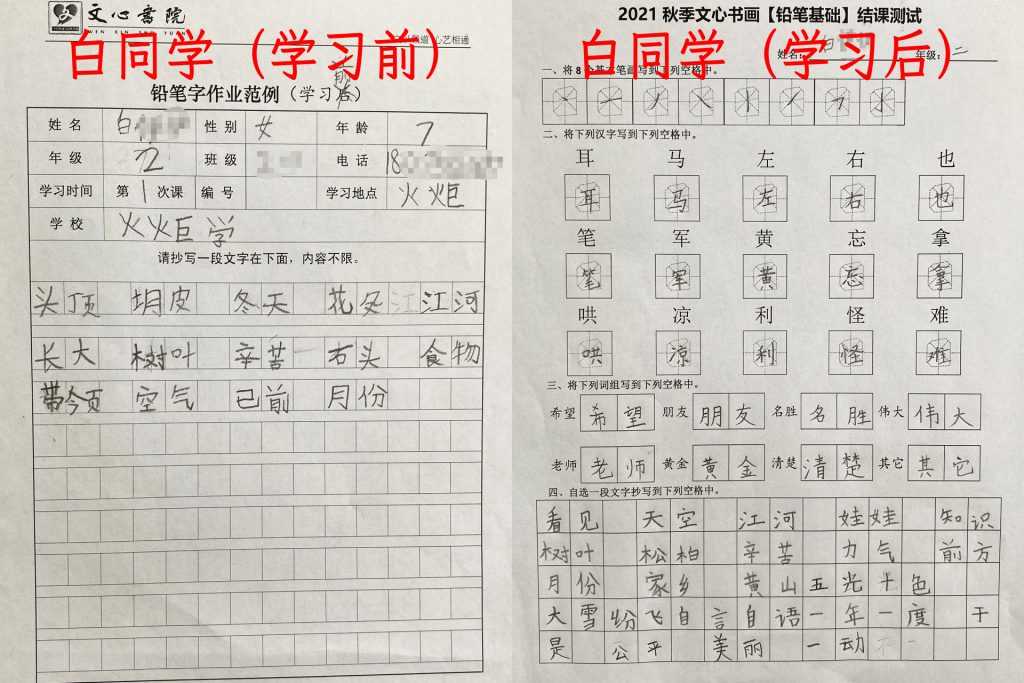 文心書院
WEN XIN SHU YUAN
心艺相通
白同学（学习前）
前
铅笔字作业范例（学习后）
姓 名 白 性 别 女 年 龄 7
年 级 2 班 级 电 话 18
学习时间 第 1 次课 编 号 学习地点 火炬
学 校 火火巨学
请抄写一段文字在下面，内容不限。
头顶 皮 冬天 花冬 江江河
长大 树叶 辛苦 石头 食物
带今页 空气 已前 月份
2021 秋季文心书画【铅笔基础】结课测试
白同学（学习后）
姓名： 白 年级： 二
一、将8个基本笔画写到下列空格中。
二、将下列汉字写到下列空格中。
耳 马 左 右 也
耳 马 左 右 也
笔 军 黄 忘 拿
笔 军 黄 忘 拿
哄 凉 利 怪 难
哄 凉 利 怪 难
三、将下列词组写到下列空格中。
希望 希望 朋友 朋友 名胜 名胜 伟大 伟大
老师 老师 黄金 黄金 清楚 清楚 其它 其它
四、自选一段文字抄写到下列空格中。
看见 天空 江河 娃娃 知识
树叶 松柏 辛苦 力气 前方
月份 家乡 黄山五光十色
大雪纷飞自言自语一年一度 于
是 公平 美丽 一动不一